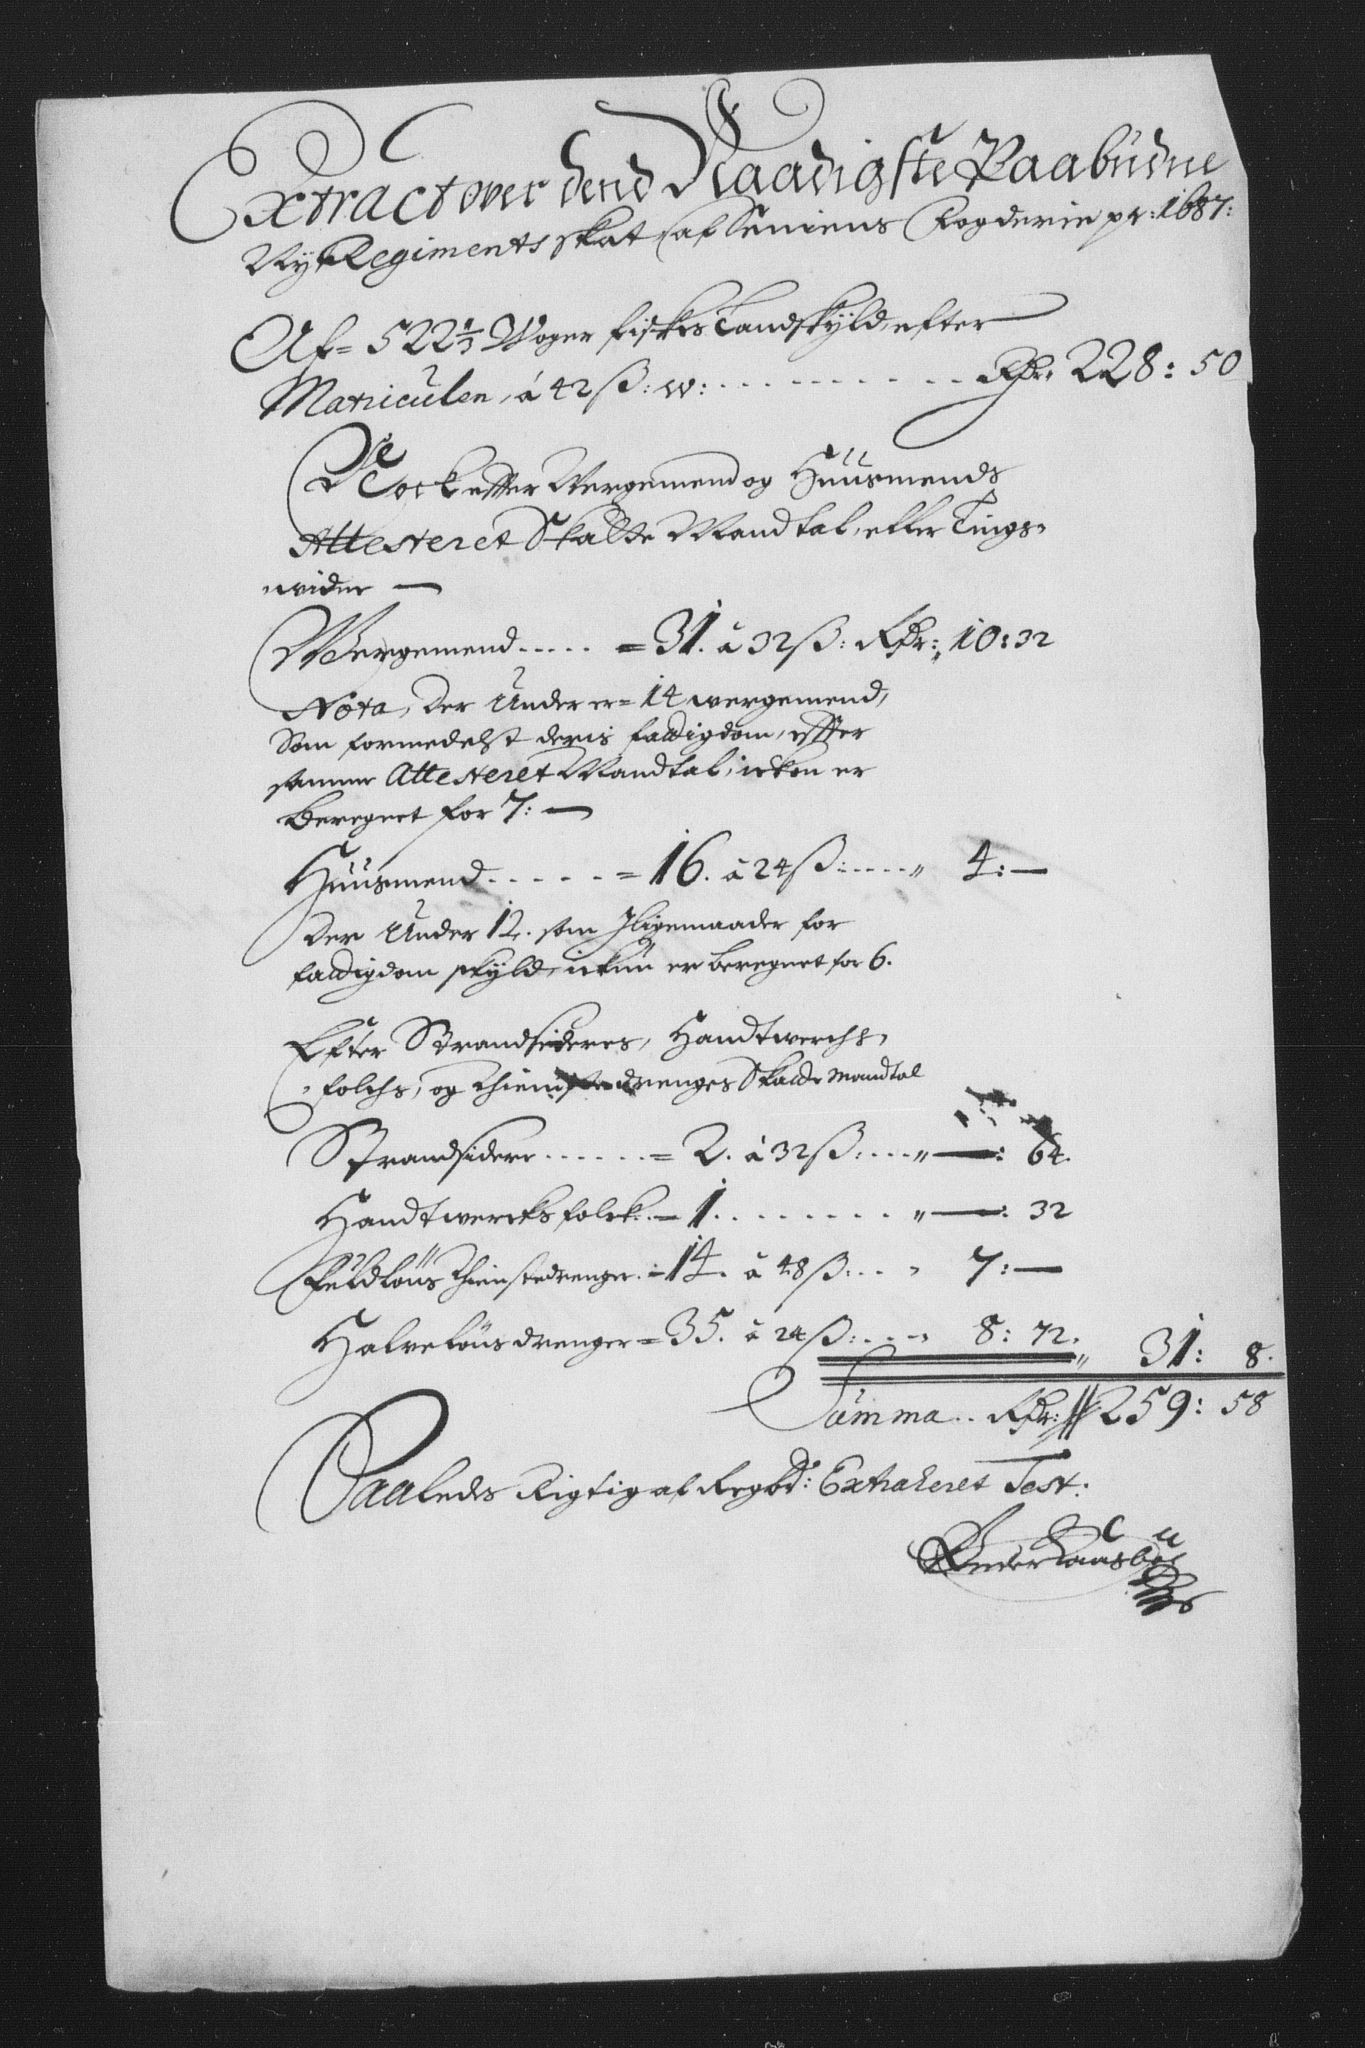 Extract over dend Naadigste Paabudne
Ny Regiments skat af Seniens Fogderie pr: 1687:
Af= 522 1/3 Woger fiskes Landskyld, efter
Matriculen, á 42 ß: w: . . . . . . . . . . Rdr 228: 50
Nock effter Wergemend og Huusmends
Attesteret Skatte Mandtal, efter Tings-
widne —
Wergemend . . . . . = 31. á 32 ß: Rdr: 10: 32
Nota, Der Under er= 14 wergemend,
Som formedelst deris fattigdom, effter
samme Attesteret Mandtal, ickon er
beregnet for 7: —
Huusmend . . . . . = 16. á 24 ß: . . . . „ 4: —
Der Under 12. som Jligemaader for
fattigdom skyld, ickun er beregnet for 6.
Efter Strandsideres, Handtwerchs,
folchs, og thienistedrenges Skatte Mandtal
Strandsidere . . . . . . = 2. á 32 ß: . . . „ —: 64.
Handtwercks folck. = 1 . . . . . . . . . „ —: 32
Fuldlöns thienistedrenger. = 14. á 48 ß: . . „ 7: —
Halvelönsdrenger = 35. á 24 ß: . . . „ 8: 72. „ 31: 8.
Summa . . Rdr: 259: 58
Saaledes Rigtig af Regbd: Extraheret Test: